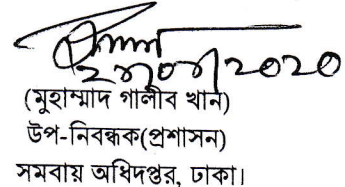 (মুহাম্মাদ গালীব খান)
উপ-নিবন্ধক(প্রশাসন)
সমবায় অধিদপ্তর, ঢাকা।